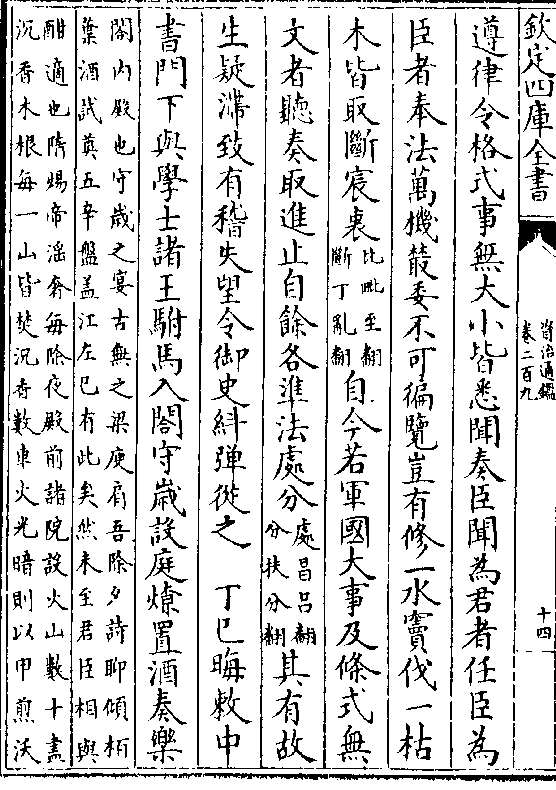 欽定四庫全書
資治通鑑
卷二百九
十四
遵律令格式事無大小皆悉聞奏臣聞為君者任臣為
臣者奉法萬機叢委不可徧覽豈有修一水竇伐一枯
木皆取斷宸衷
比毗至翻
斷丁亂翻
自今若軍國大事及條式無
文者聽奏取進止自餘各準法處分
處昌呂翻
分扶分翻
其有故
生疑滯致有稽失望令御史糾彈從之 丁巳晦敕中
書門下與學士諸王駙馬入閤守嵗設庭燎置酒奏樂
閤内殿也守嵗之宴古無之梁庾肩吾除夕詩聊傾栢
葉酒試奠五辛盤盖江左已有此矣然未至君臣相與
酣適也隋煬帝滛奢每除夜殿前諸院設火山數十盡
沉香木根每一山皆焚沉香數車火光暗則以甲煎沃